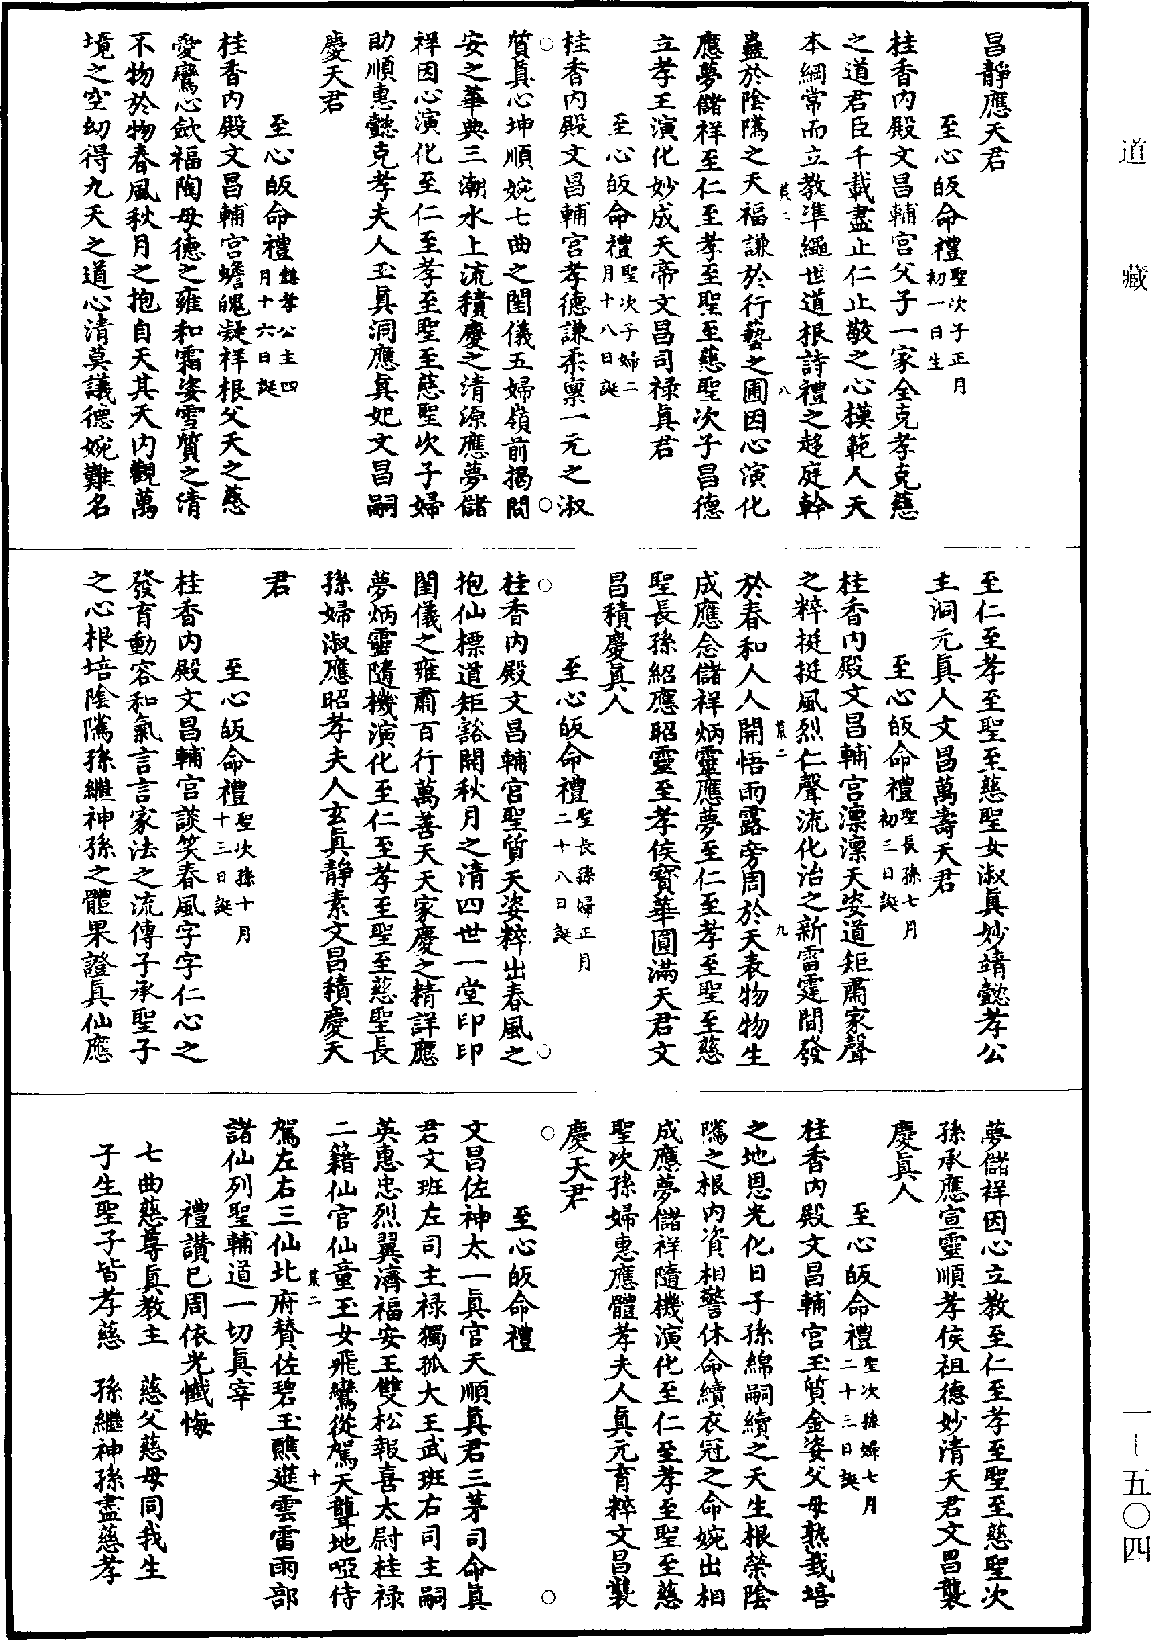 道藏
一—五〇四
昌靜應天君
至心皈命禮聖次子正月初一日生
桂香内殿文昌輔宫父子一家全克孝克慈
之道君臣千載盡止仁止敬之心模範人天
本綱常而立教準繩世道根詩禮之趨庭幹
蠱於陰隲之天福謙於行藝之圃因心演化
應夢儲祥至仁至孝至聖至慈聖次子昌德
立孝王演化妙成天帝文昌司禄真君
至心皈命禮聖次子婦二月十八日誕
桂香内殿文昌輔宫孝德謙柔禀一元之淑
質真心坤順婉七曲之閨儀五婦嶺前揭閟
安之華典三潮水上流積慶之清源應夢儲
祥因心演化至仁至孝至聖至慈聖次子婦
助順惠懿克孝夫人玉真洞應真妃文昌嗣
慶天君
至心皈命禮懿孝公主四月十六日誕
桂香内殿文昌輔宫蟾魄凝祥根父天之慈
愛鸞心歛福陶母德之雍和霜姿雪質之清
不物於物春風秋月之抱自天其天内觀萬
境之空幼得九天之道心清莫議德婉難名
至仁至孝至聖至慈聖女淑真妙靖懿孝公
主洞元真人文昌萬壽天君
至心皈命禮聖長孫七月初三日誕
桂香内殿文昌輔宫凛凛天姿道矩肅家聲
之粹挺挺風烈仁聲流化治之新雷霆間發
於春和人人開悟雨露旁周於天表物物生
成應念儲祥炳靈應夢至仁至孝至聖至慈
聖長孫紹應昭靈至孝侯寳華圓滿天君文
昌積慶真人
至心皈命禮聖長孫婦正月二十八日誕
桂香内殿文昌輔宫聖質天姿粹出春風之
抱仙標道矩豁開秋月之清四世一堂印印
閨儀之雍肅百行萬善天天家慶之精詳應
夢炳靈隨機演化至仁至孝至聖至慈聖長
孫婦淑應昭孝夫人玄真靜素文昌積慶天
君
至心皈命禮聖次孫十月十三日誕
桂香内殿文昌輔宫談笑春風字字仁心之
發育動容和氣言言家法之流傳子承聖子
之心根培陰隲孫繼神孫之體果證真仙應
夢儲祥因心立教至仁至孝至聖至慈聖次
孫承應宣靈順孝侯祖德妙清天君文昌襲
慶真人
至心皈命禮聖次孫婦七月二十三日誕
桂香内殿文昌輔宫玉質金姿父母熟栽培
之地恩光化日子孫綿嗣續之天生根榮陰
隲之根内資相警休命續衣冠之命婉出相
成應夢儲祥隨機演化至仁至孝至聖至慈
聖次孫婦惠應體孝夫人真元育粹文昌襲
慶天君
至心皈命禮
文昌佐神太一真官天順真君三茅司命真
君文班左司主禄獨孤大王武班右司主嗣
英惠忠烈翼濟福安王雙松報喜太尉桂禄
二籍仙官仙童玉女飛鸞從駕天聾地啞侍
駕左右三仙北府賛佐碧玉醮筵雲雷雨部
諸仙列聖輔道一切真宰
禮讃已周依光懺悔
七曲慈尊真教主　慈父慈母同我生
子生聖子皆孝慈　孫繼神孫盡慈孝